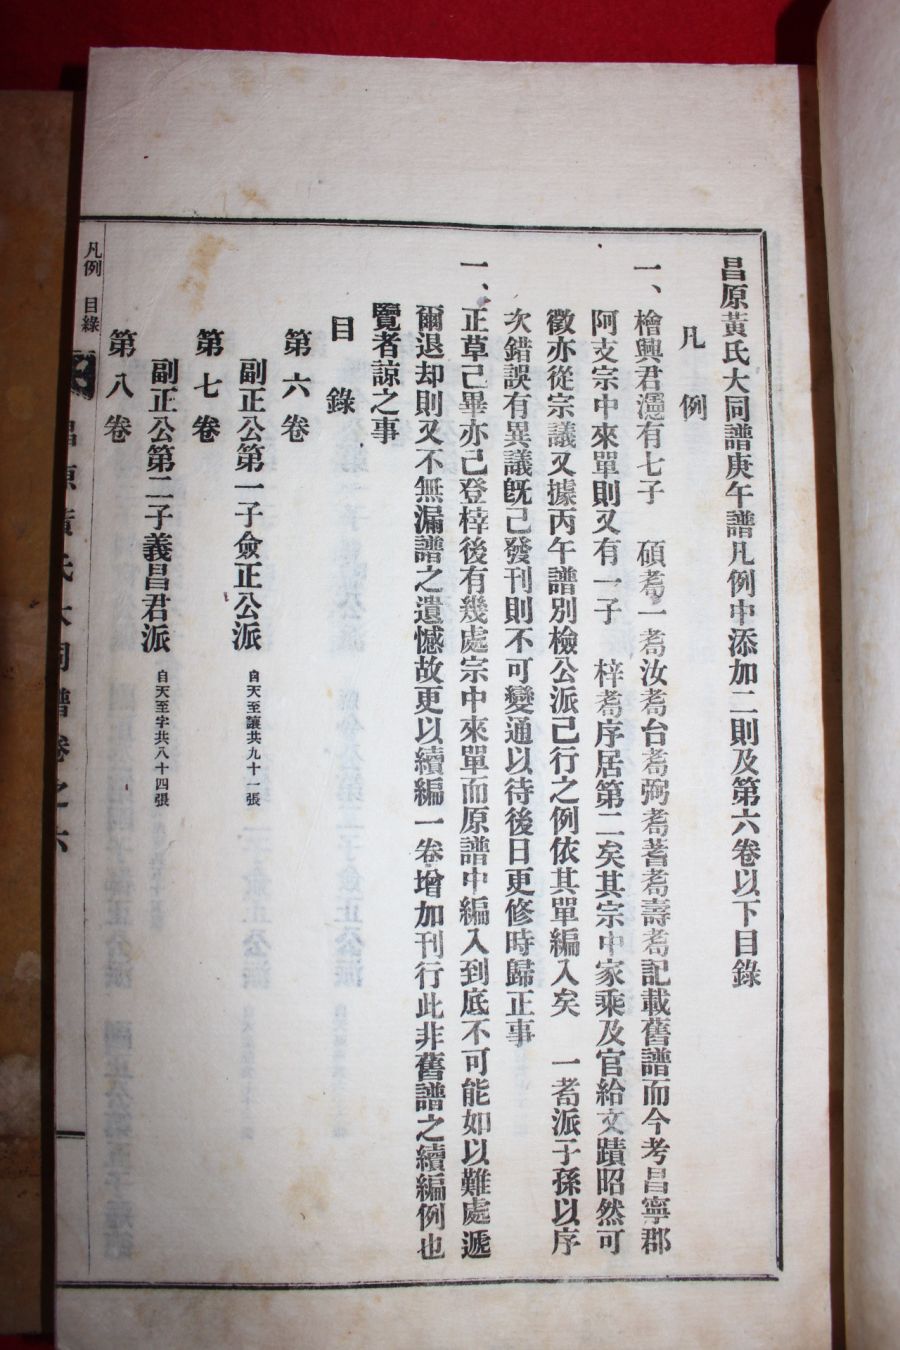 昌原黃氏大同譜庚午譜凡例中添加二則及第六卷以下目錄
凡例
一、檜興君有七子 碩耈一耈汝耈台耈弼耈蓍耈壽耈記載舊譜而今考昌寧郡
阿支宗中來單則又有一子 梓耈序居第二矣其宗中家乘及官給文蹟昭然可
徵亦從宗議又據丙午譜別檢公派己行之例依其單編入矣 一耈派子孫以序
次錯誤有異議旣己發刊則不可變通以待後日更修時歸正事
一、正草己畢亦己登梓後有幾處宗中來單而原譜中編入到底不可能如以難處遞
爾退却則又不無漏譜之遺憾故更以續編一卷增加刊行此非舊譜之續編例也
覽者諒之事
目錄
第六卷
副正公第一子僉正公派 自天至讓共九十一張
第七卷
副正公第二子義昌君派 自天至字共八十四張
第八卷
凡例 目錄
昌原黃氏大同譜卷之六